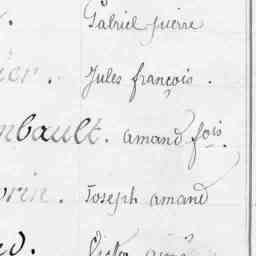 Gabriel pierre
ier. Jules françois.
mbault. amand fois.
rin. Joseph amand
Victor aimé